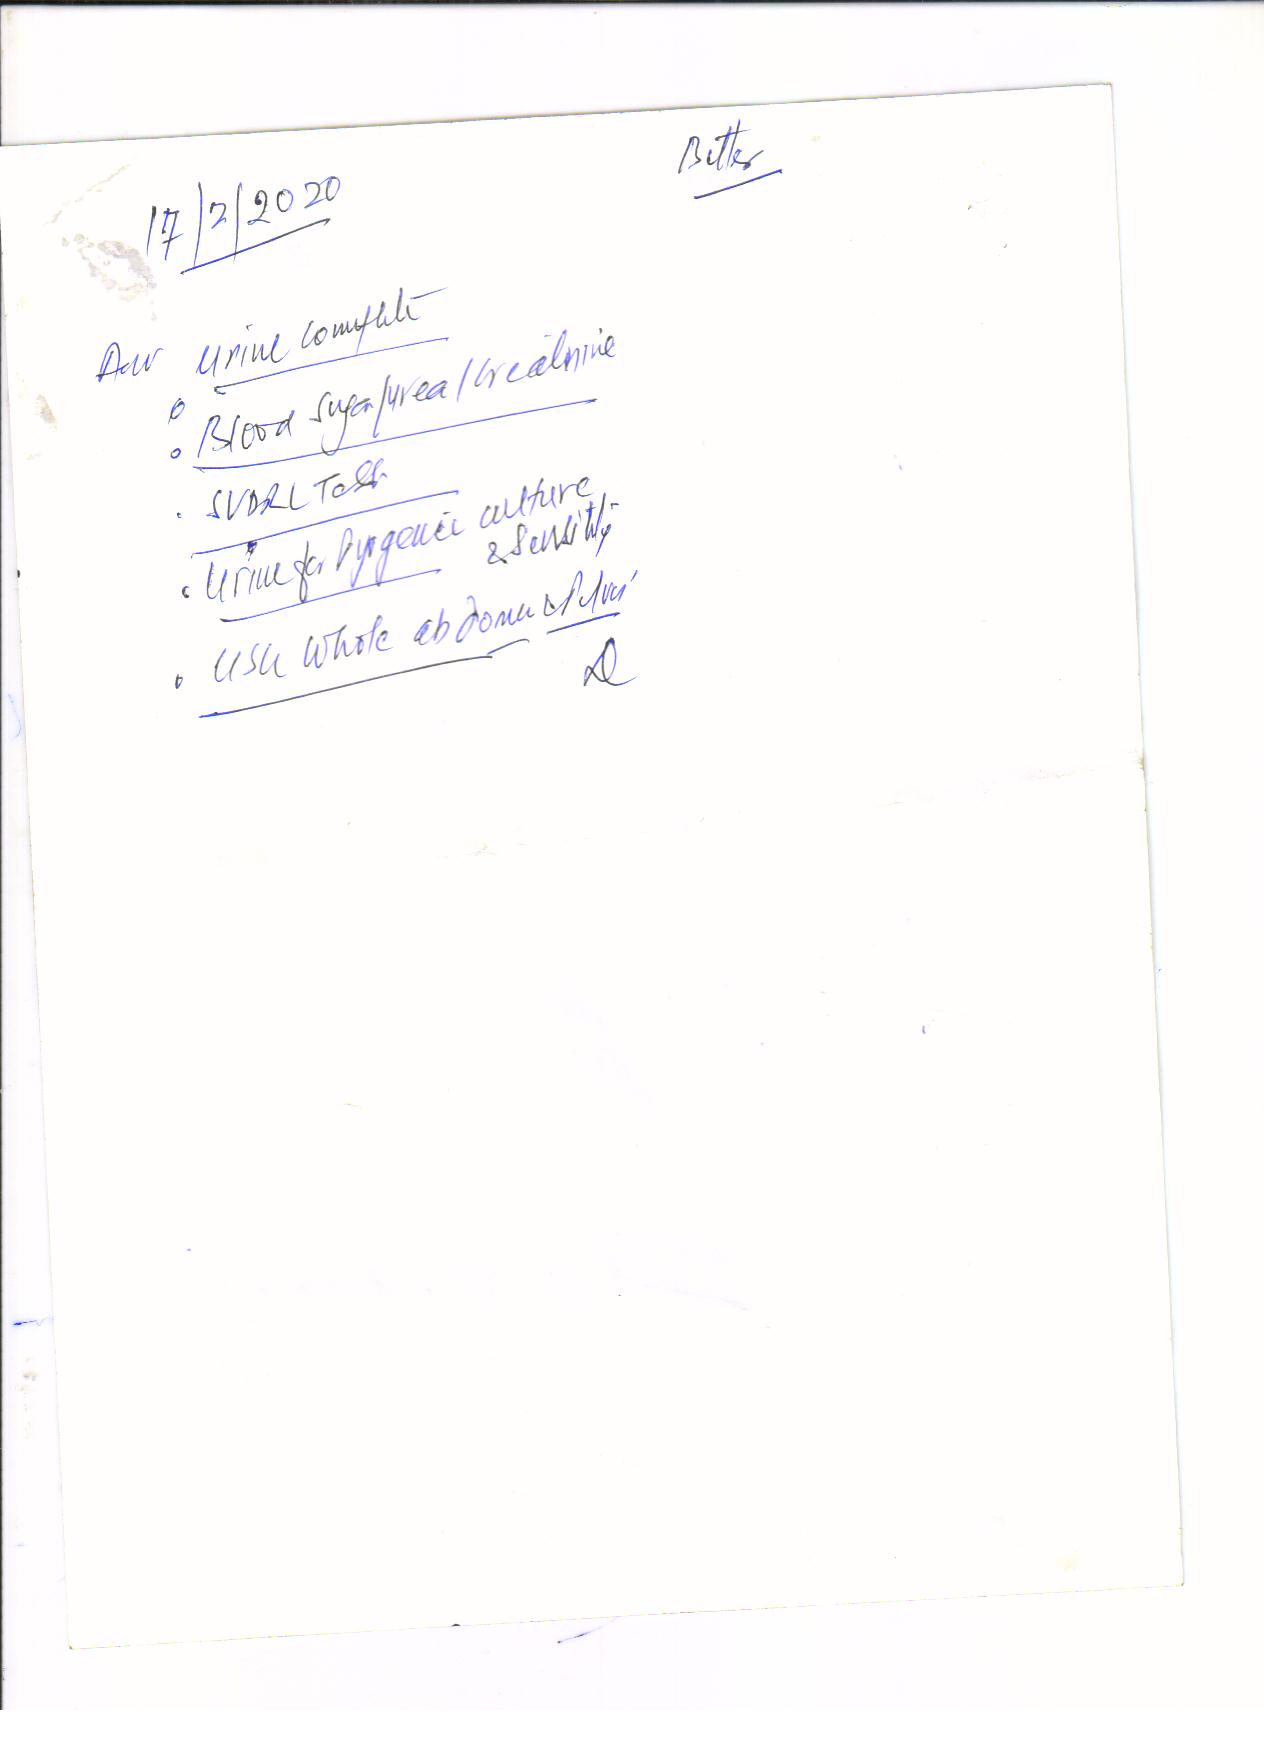 Better
17/2/2020
Adv Urine Complete
Blood Sugar/Urea/Creatinine
SVDRL Test
Urine for Pyogenic culture
& Sensitivity
USG Whole abdomen & Pelvis